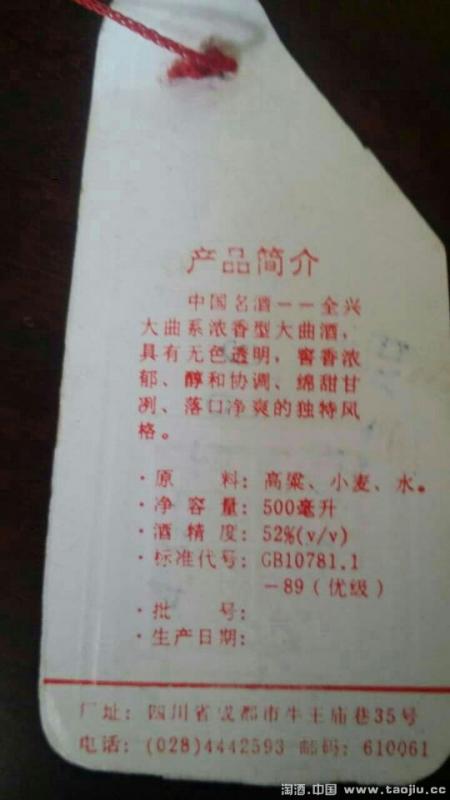 产品简介
中国名酒——全兴
大曲系浓香型大曲酒,
具有无色透明，窖香浓
郁、醇和协调、绵甜甘
冽、落口净爽的独特风
格。
·原 料：高粱、小麦、水。
·净容量：500毫升
·酒精度：52%(v/v)
·标准代号：GB10781.1
－89（优级）
·批 号：
·生产日期：
厂址：四川省成都市牛王庙巷35号
电话：(028)4442593 邮码：610061
淘酒.中国 www.taojiu.cc